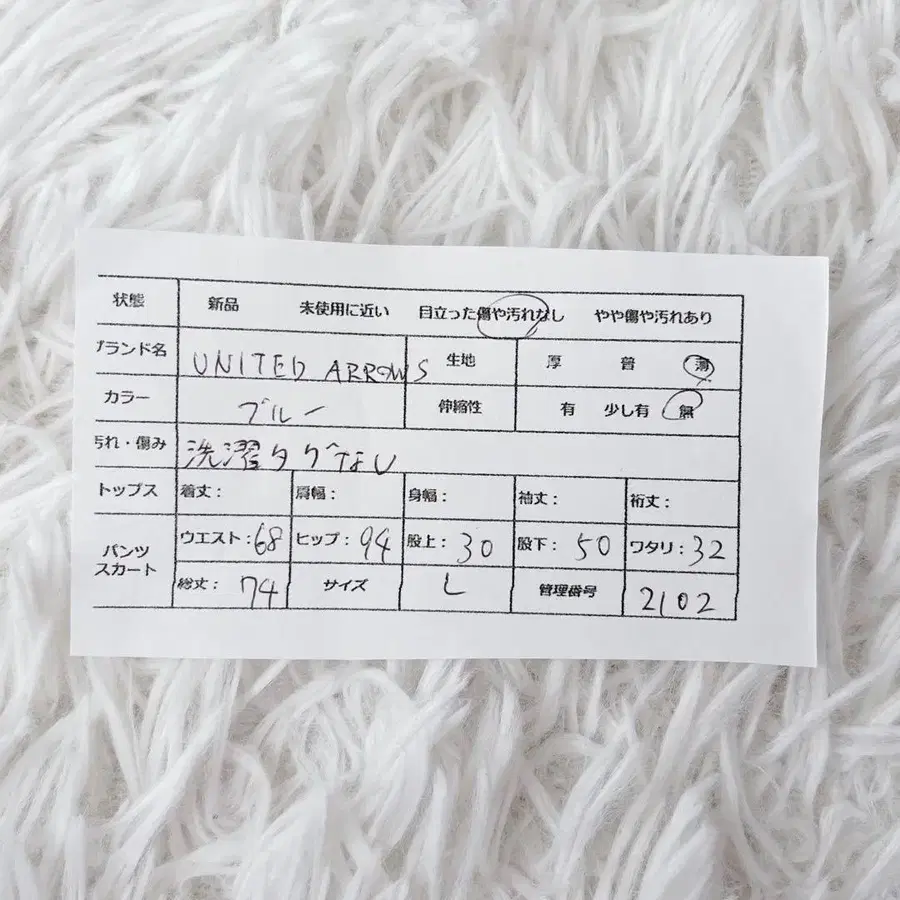 状態 新品 未使用に近い 目立った傷や汚れなし やや傷や汚れあり
ブランド名 UNITED ARROWS 生地 厚 普 薄
カラー ブルー 伸縮性 有 少し有 無
汚れ・傷み 洗濯タグなし
トップス 着丈: 肩幅: 身幅: 袖丈: 裄丈:
パンツ スカート ウエスト:68 ヒップ:94 股上:30 股下:50 ワタリ:32
総丈:74 サイズ L 管理番号 2102